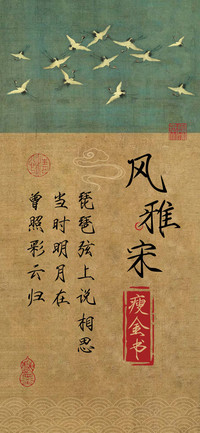 风雅宋
瘦金书
琵琶弦上说相思
当时明月在
曾照彩云归